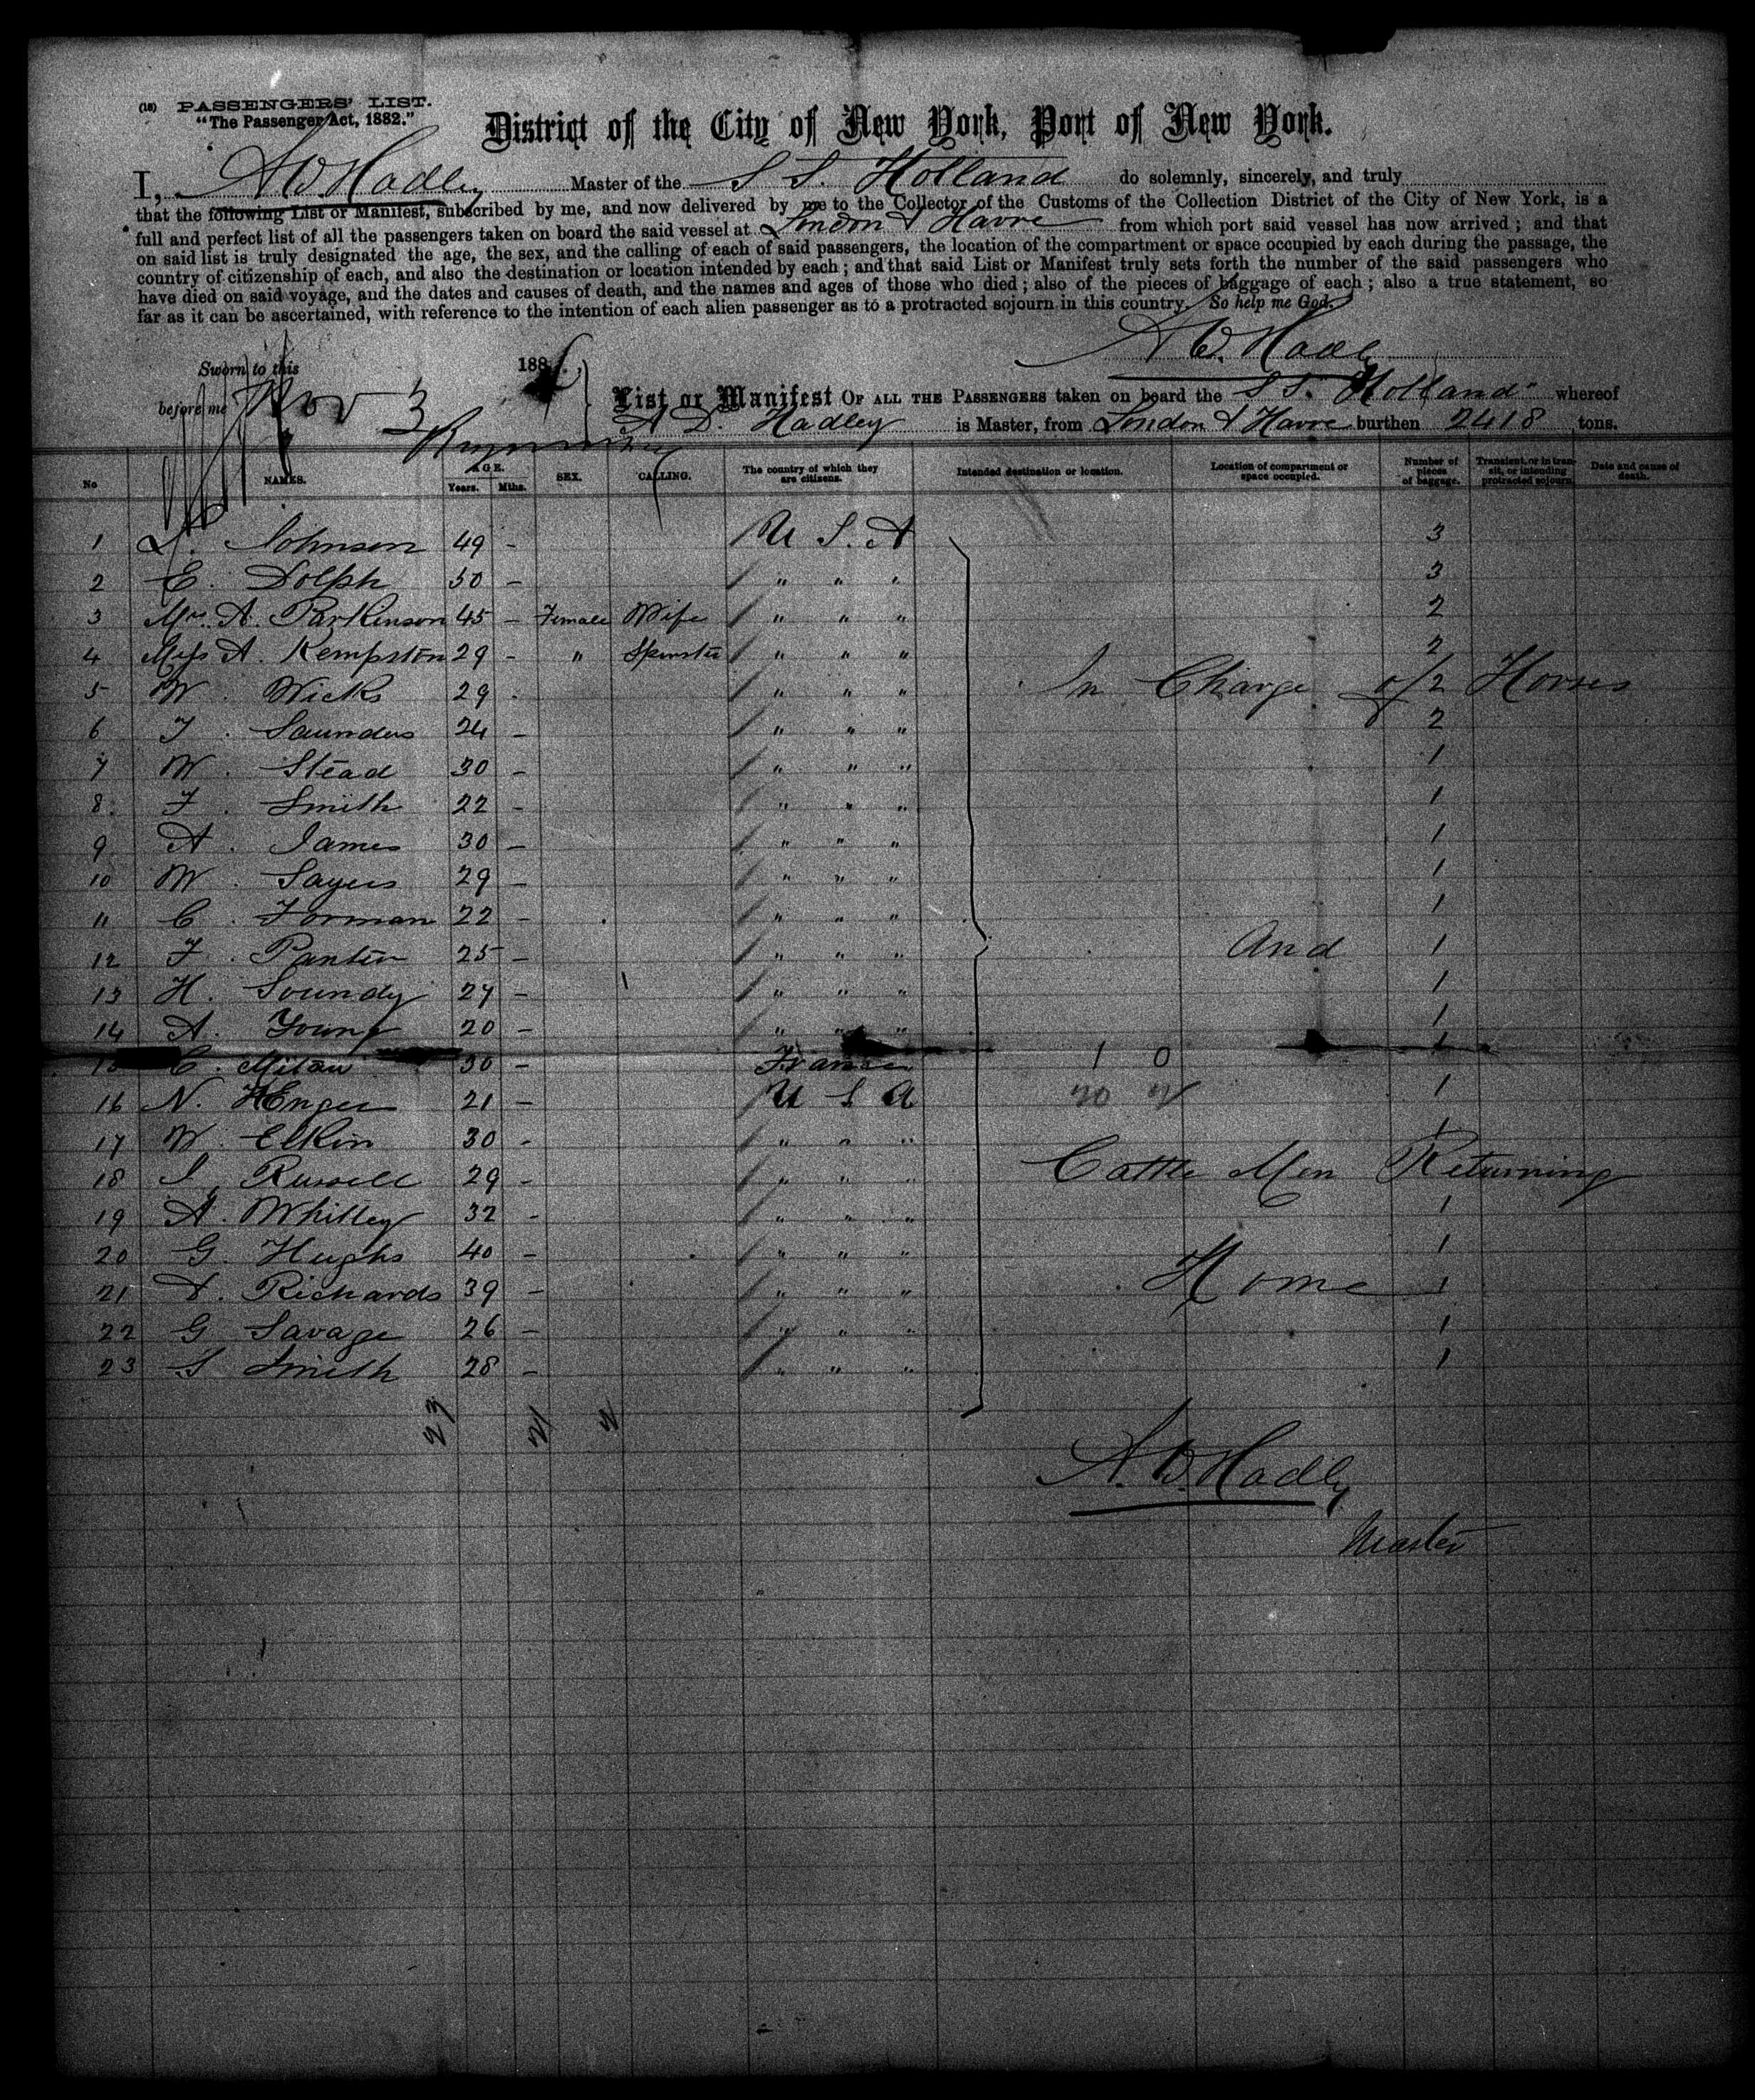 (18) PASSENGERS' LIST.
"The Passenger Act, 1882."
District of the City of New York, Port of New York.
I, A D. Hadley Master of the S S. Holland do solemnly, sincerely, and truly
that the following List or Manifest, subscribed by me, and now delivered by me to the Collector of the Customs of the Collection District of the City of New York, is a
full and perfect list of all the passengers taken on board the said vessel at London & Havre from which port said vessel has now arrived; and that
on said list is truly designated the age, the sex, and the calling of each of said passengers, the location of the compartment or space occupied by each during the passage, the
country of citizenship of each, and also the destination or location intended by each; and that said List or Manifest truly sets forth the number of the said passengers who
have died on said voyage, and the dates and causes of death, and the names and ages of those who died; also of the pieces of baggage of each; also a true statement, so
far as it can be ascertained, with reference to the intention of each alien passenger as to a protracted sojourn in this country. So help me God.
A D. Hadley
Sworn to this 188
before me Nov 3
List or Manifest OF ALL THE PASSENGERS taken on board the S S. "Holland" whereof
A D. Hadley is Master, from London & Havre burthen 2418 tons.
No NAMES. AGE. Years. Mths. SEX. CALLING. The country of which they are citizens. Intended destination or location. Location of compartment or space occupied. Number of pieces of baggage. Transient, or in transit, or intending protracted sojourn. Date and cause of death.
1 Johnson 49 - U S. A 3
2 E. Dolph 50 - " " " 3
3 Mrs. A. Parkinson 45 - Female Wife " " " 2
4 Miss A. Kempston 29 - " Spinster " " " 2
5 W. Wicks 29 - " " " In Charge of Horses 2
6 Saunders 24 - " " " 2
7 W. Stead 30 - " " " 1
8. Smith 22 - " " " 1
9 A. James 30 - " " " 1
10 W. Sayers 29 - " " " 1
11 C. Forman 22 - " " " 1
12 F. Panter 25 - " " " And 1
13 H. Soundy 27 - " " " 1
14 A. Young 20 - " " " 1
15 C. Milau 30 - France 1 0 1
16 N. Enger 21 - U S A 20 2 1
17 W. Elkin 30 - " " " 1
18 Russell 29 - " " " Cattle Men Returning
19 A. Whitley 32 - " " " 1
20 G. Hughs 40 - " " " 1
21 Richards 39 - " " " Home 1
22 G Savage 26 - " " " 1
23 S Smith 28 - " " " 1
23 21 2
A. D. Hadley
Master